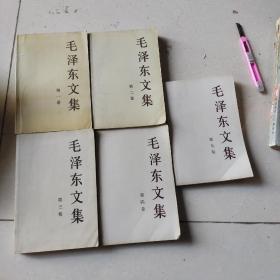 毛泽东文集
第一卷
毛泽东文集
第二卷
毛泽东文集
第三卷
毛泽东文集
第四卷
毛泽东文集
第五卷